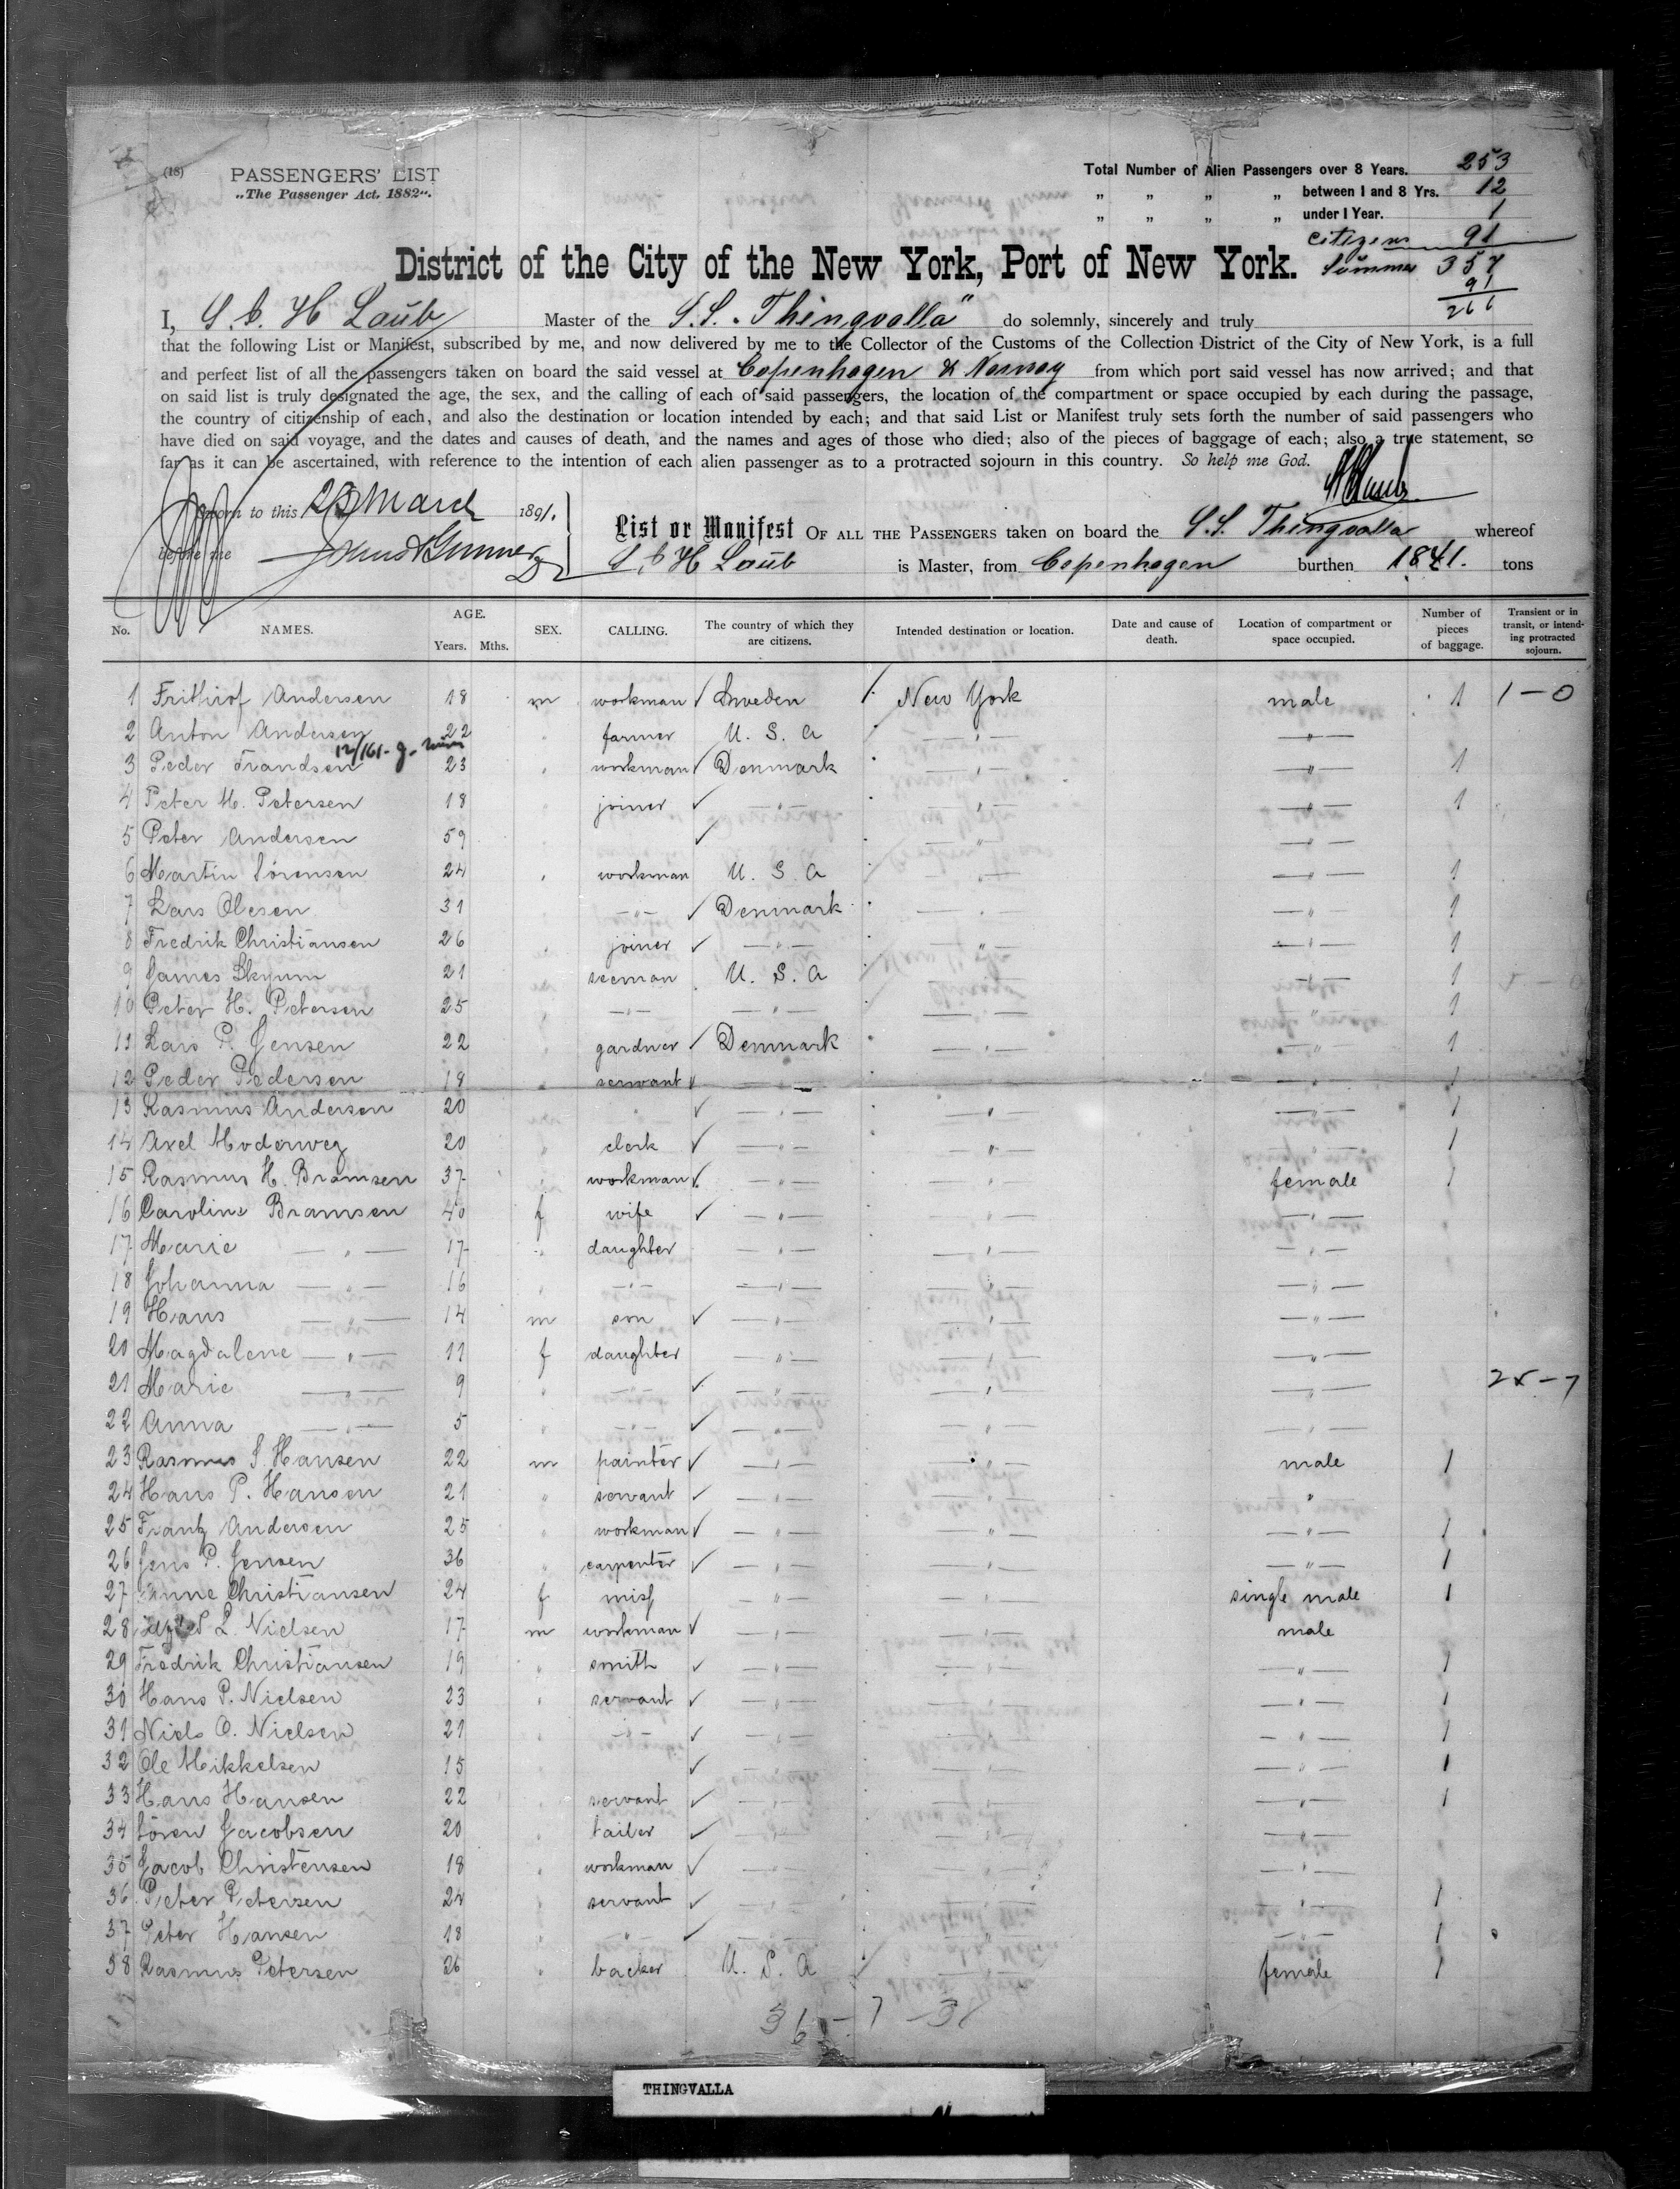 (18) PASSENGERS' LIST
„The Passenger Act. 1882“.
Total Number of Alien Passengers over 8 Years. 253
„ „ „ „ between 1 and 8 Yrs. 12
„ „ „ „ under 1 Year. 1
citizens 91
Summa 357
91
266
District of the City of the New York, Port of New York.
I, S. H Laub Master of the S.S. „Thingvalla“ do solemnly, sincerely and truly
that the following List or Manifest, subscribed by me, and now delivered by me to the Collector of the Customs of the Collection District of the City of New York, is a full
and perfect list of all the passengers taken on board the said vessel at Copenhagen & Norway from which port said vessel has now arrived; and that
on said list is truly designated the age, the sex, and the calling of each of said passengers, the location of the compartment or space occupied by each during the passage,
the country of citizenship of each, and also the destination or location intended by each; and that said List or Manifest truly sets forth the number of said passengers who
have died on said voyage, and the dates and causes of death, and the names and ages of those who died; also of the pieces of baggage of each; also a true statement, so
far as it can be ascertained, with reference to the intention of each alien passenger as to a protracted sojourn in this country. So help me God.
Sworn to this 23 March 1891.
before me
List or Manifest OF ALL THE PASSENGERS taken on board the S.S. Thingvalla whereof
S. H Laub is Master, from Copenhagen burthen 1841. tons
No. NAMES. AGE. Years. Mths. SEX. CALLING. The country of which they are citizens. Intended destination or location. Date and cause of death. Location of compartment or space occupied. Number of pieces of baggage. Transient or in transit, or intending protracted sojourn.
1 Frithiof Andersen 18 m workman Sweden New York male 1 1-0
2 Anton Andersen 22 farmer U. S. A — " — — " —
3 Peder Frandsen 23 workman Denmark — " — — " — 1
4 Peter M. Petersen 18 joiner — " — — " — — " — 1
5 Peter Andersen 59 — " — — " —
6 Martin Sörensen 24 workman U. S. A — " — — " — 1
7 Lars Olesen 31 — " — Denmark — " — — " — 1
8 Fredrik Christiansen 26 joiner — " — — " — — " — 1
9 James Skyum 21 seeman U. S. A — " — 1
10 Peter H. Petersen 25 — " — — " — — " — 1
11 Lars P. Jensen 22 gardner Denmark — " — — " — 1
12 Peder Pedersen 19 servant — " — — " — — " — 1
13 Rasmus Andersen 20 " — " — — " — — " — 1
14 Axel Moderweg 20 clerk — " — — " — — " — 1
15 Rasmus H. Bramsen 37 workman — " — — " — female 1
16 Caroline Bramsen 40 f wife — " — — " — — " —
17 Marie — " — 17 " daughter — " — — " — — " —
18 Johanna — " — 16 — " — — " — — " — — " —
19 Hans — " — 14 m son — " — — " — — " —
20 Magdalene — " — 11 f daughter — " — — " — — " —
21 Marie — " — 9 " — " — — " — — " — — " — 25-7
22 Anna — " — 5 " — " — — " — — " — — " —
23 Rasmus S. Hansen 22 m painter — " — — " — male 1
24 Hans P. Hansen 21 " servant — " — — " — "
25 Frantz Andersen 25 " workman — " — — " — — " — 1
26 Jens P. Jensen 36 " carpenter — " — — " — — " — 1
27 Anne Christiansen 24 f miss — " — — " — single male 1
28 L. Nielsen 17 m workman — " — — " — male
29 Fredrik Christiansen 19 " smith — " — — " — — " — 1
30 Hans P. Nielsen 23 " servant — " — — " — — " — 1
31 Niels O. Nielsen 21 — " — — " — — " — — " — 1
32 Ole Mikkelsen 15 — " — — " — — " — 1
33 Hans Hansen 22 servant — " — — " — — " — 1
34 Sören Jacobsen 20 tailer — " — — " — — " —
35 Jacob Christensen 18 workman — " — — " — — " —
36 Peter Petersen 24 servant — " — — " — — " — 1
37 Peter Hansen 18 " — " — — " — — " — 1
38 Rasmus Petersen 26 " backer U. S. A — " — female 1
36 - 7 - 31
THINGVALLA